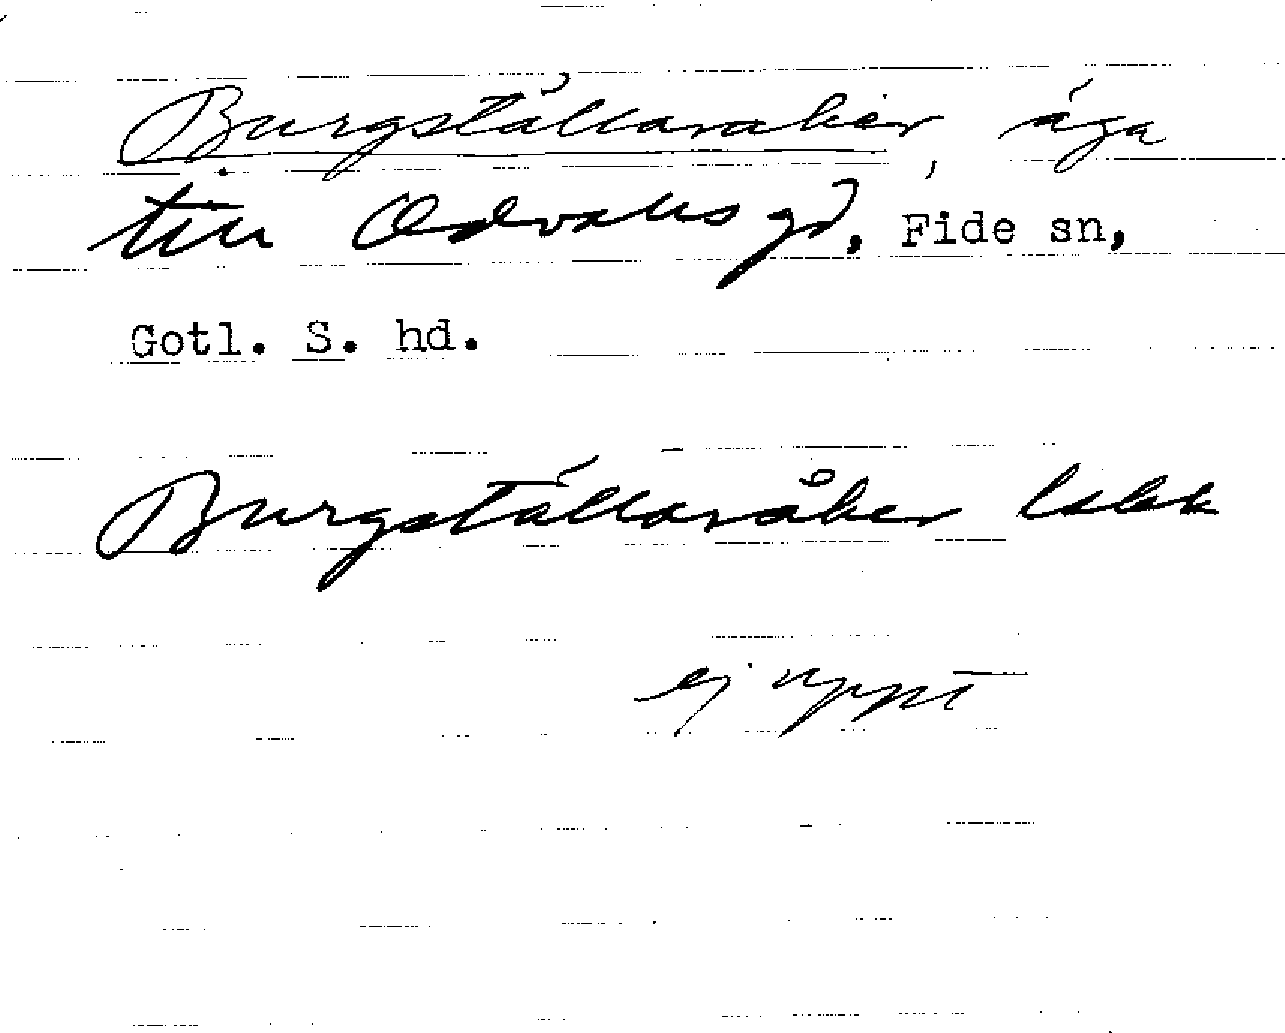 Burgställaraker, äga
till Odvalls gd, Fide sn,
Gotl. S. hd.
Burgställaråker
ej uppt